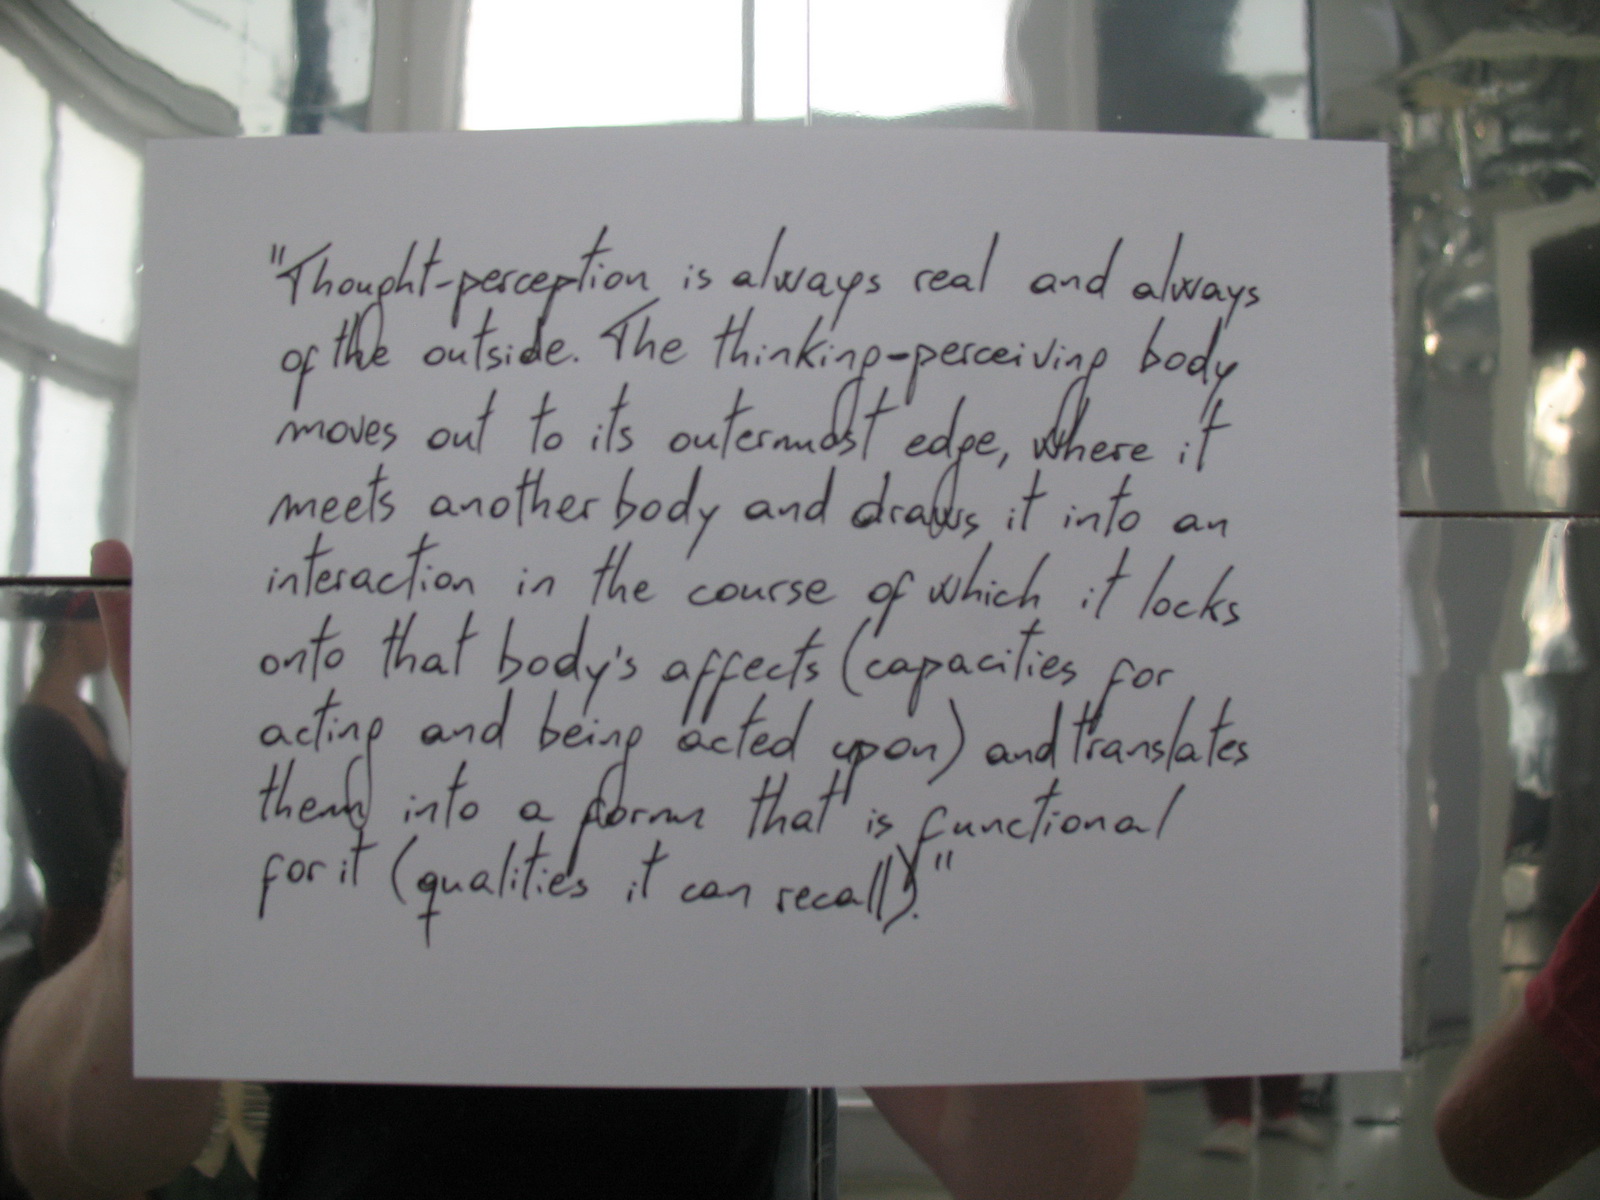 "Thought-perception is always real and always
of the outside. The thinking-perceiving body
moves out to its outermost edge, where it
meets another body and draws it into an
interaction in the course of which it locks
onto that body's affects (capacities for
acting and being acted upon) and translates
them into a form that is functional
for it (qualities it can recall)."